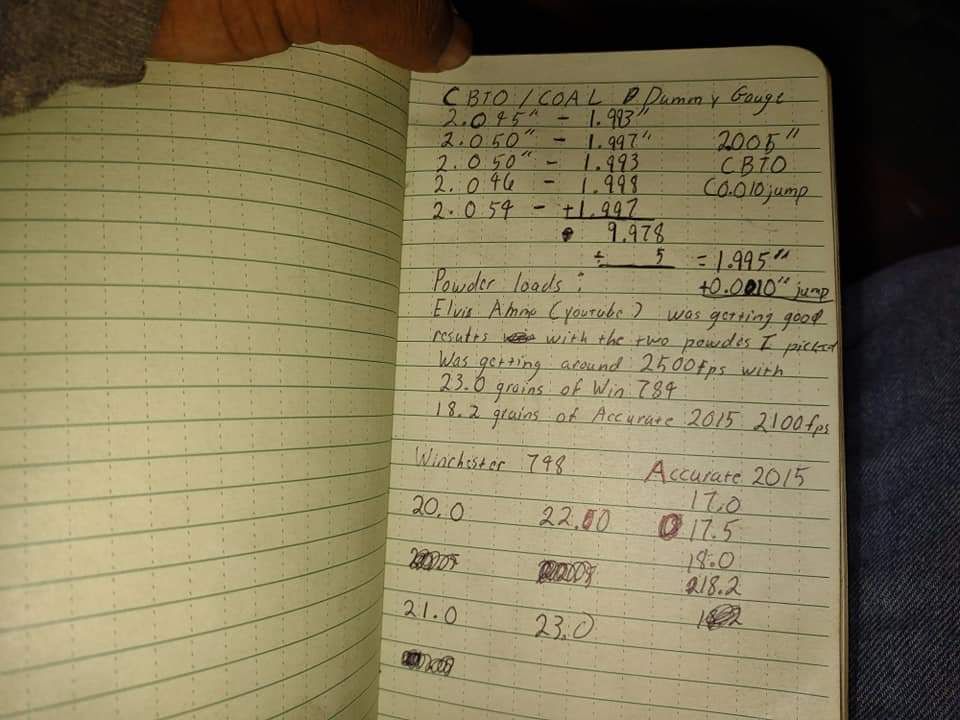 CBTO / COAL Dummy Gauge
2.045" - 1.993"
2.050" - 1.997" 2005"
2.050" - 1.993 CBTO
2.046 - 1.998 C0.010 jump
2.054 - +1.997
9.978
÷ 5 = 1.995"
Powder loads: +0.0010" jump
Elvis (youtube) was getting good
results with the two powdes I picked
Was getting around 2500fps with
23.0 grains of Win 784
18.2 grains of Accurate 2015 2100fps
Winchester 748 Accurate 2015
17.0
20.0 22.00 17.5
18.0
218.2
21.0 23.0